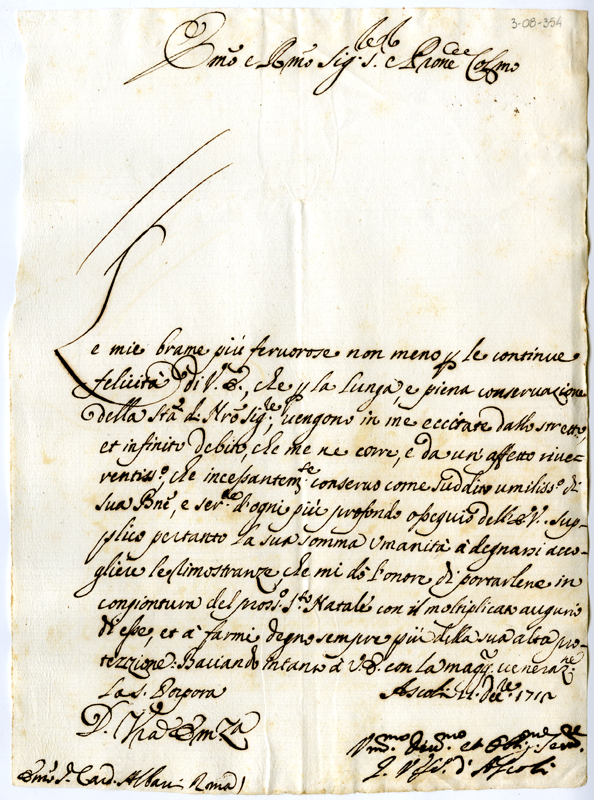 3-08-354
Emo e Rmo Sig.r S.r e Prone Colmo
Le mie brame più fervorose non meno p le continue
felicità di V. E., che p la lunga, e piena conservazione
della Sta di Nro Sig.re, vengono in me eccitate dallo stretto,
et infinito debito, che me ne corre, e da un'affetto rive-
rentiss.o, che incessantem.te conservo come suddito umiliss.o di
sua Bne, e ser.re d'ogni più profondo ossequio dell'E. V. Sup-
plico pertanto la sua somma umanità à degnarsi acco-
gliere le dimostranze, che mi dò l'onore di portarlene in
congiontura del pross.o S.to Natale con il moltiplicato augurio
di esse, et à farmi degno sempre più della sua alta pro-
tezzione: Baciando intanto à V. E. con la magg.r veneraz.ne
la S. Porpora
Ascoli 11. Dec.re 1712
D. Vra Emza
Vmo. Divmo. et Obblig.mo Serv.re
Emo S.r Card. Albani Roma
Vesc.o d'Ascoli